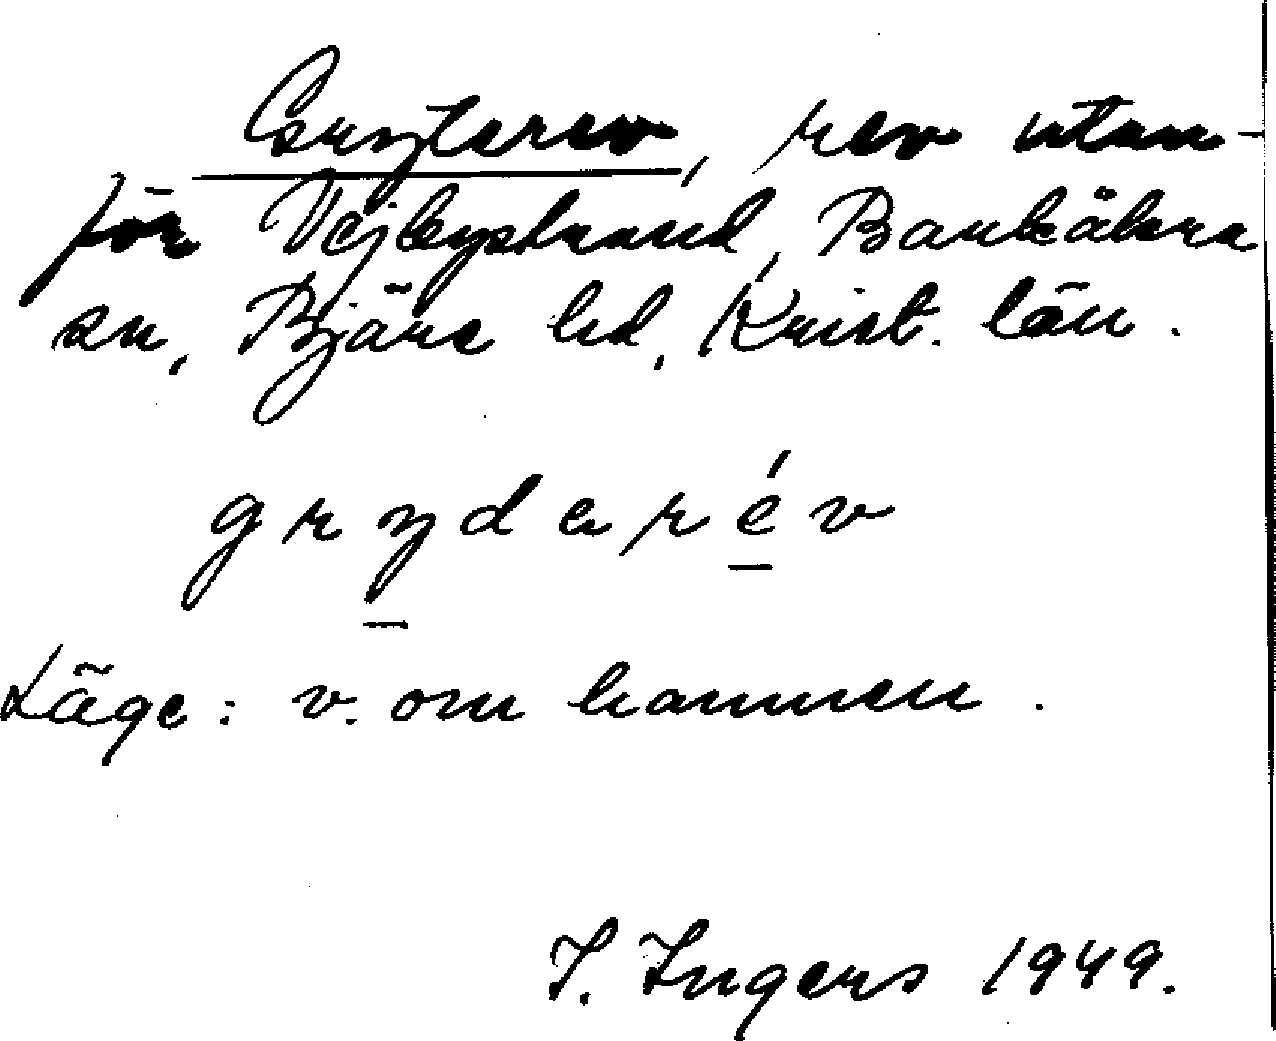 Gryterev, rev utan-
för Vejbystrand, Barkåkra
sn, Bjäre hd, Krist. län.
gryderév
Läge: v. om hamnen.
I. Ingers 1949.